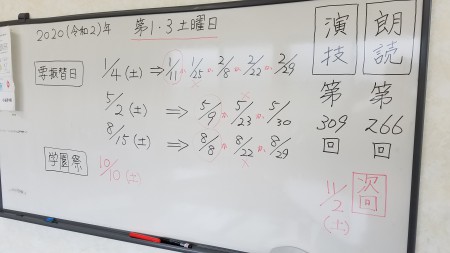 2020(令和2)年 第1·3土曜日
要振替日
1/4(土) ⇒ 1/11 か 1/25 か 2/8 か 2/22 か 2/29
5/2(土) ⇒ 5/9 か 5/23 か 5/30
8/15(土) ⇒ 8/8 か 8/22 か 8/29
学園祭
10/10(土)
朗読 第266回
演技 第309回
次回
11/2(土)